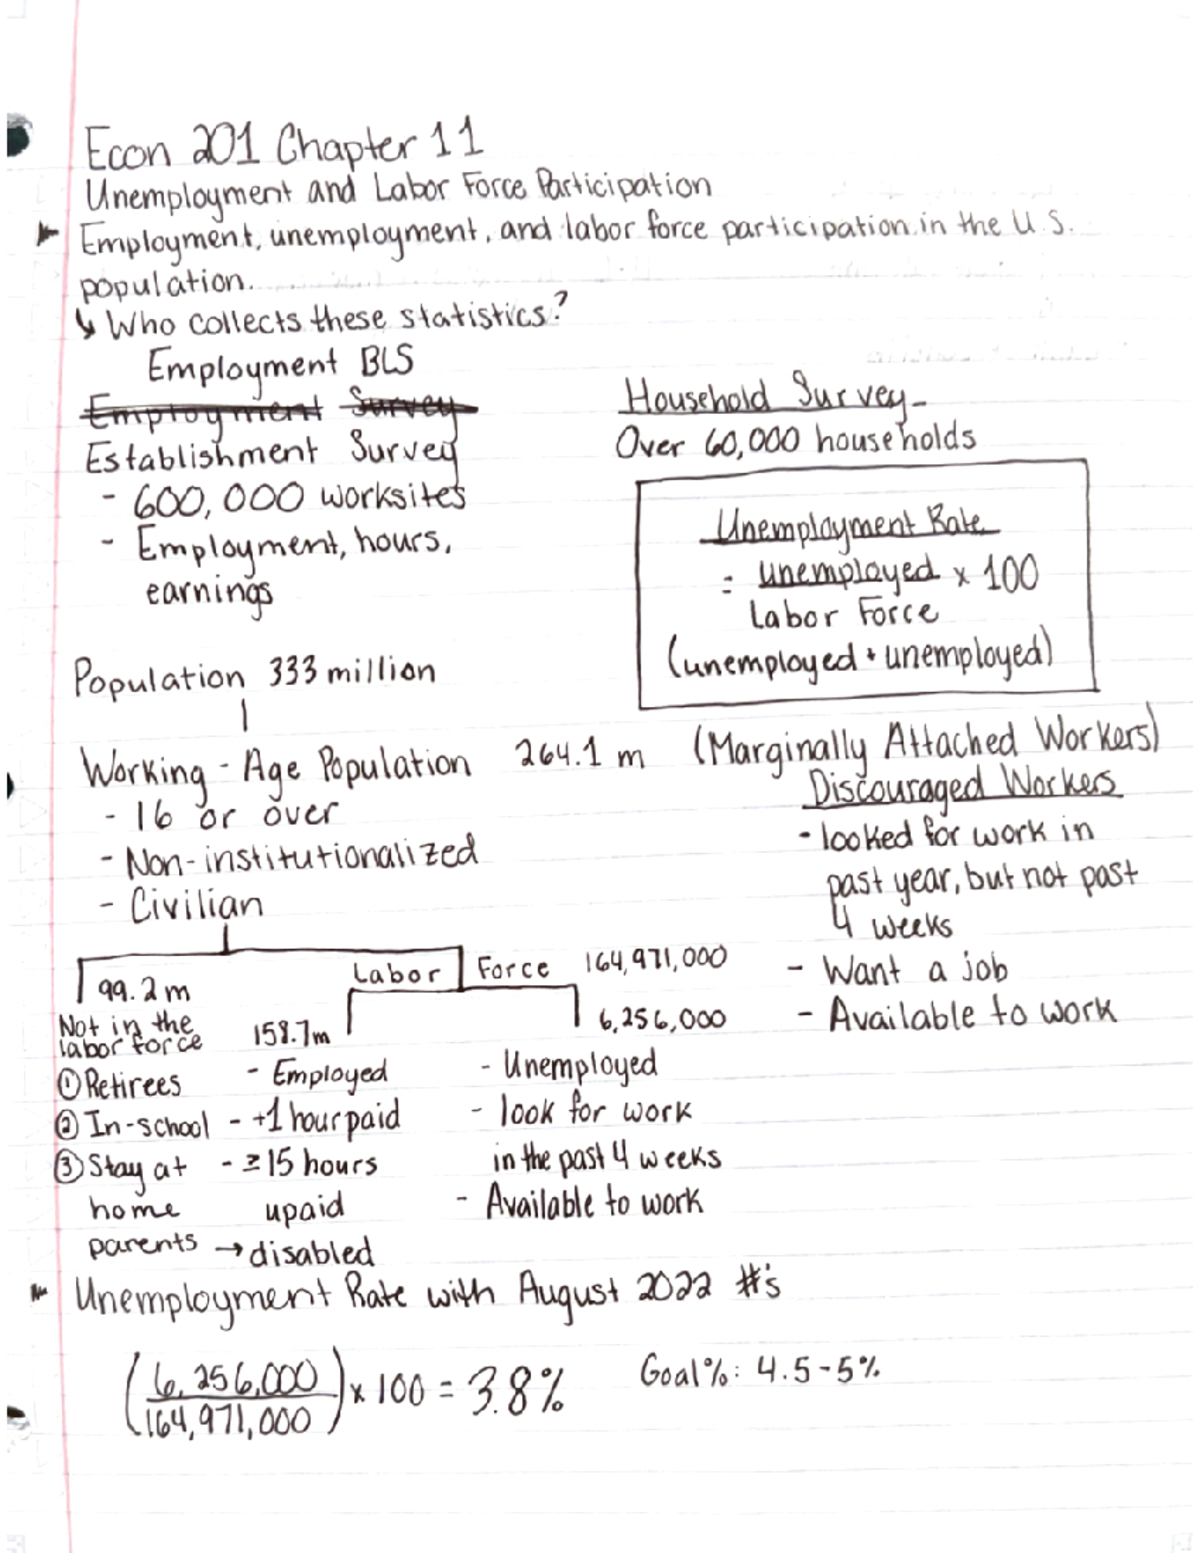 Econ 201 Chapter 11
Unemployment and Labor Force Participation
Employment, unemployment, and labor force participation in the U.S.
population.
↳ Who collects these statistics?
Employment BLS
Employment Survey
Establishment Survey
- 600,000 worksites
- Employment, hours,
earnings
Household Survey-
Over 60,000 households
Unemployment Rate
= unemployed x 100
Labor Force
(unemployed + unemployed)
Population 333 million
Working-Age Population 264.1 m
- 16 or over
- Non-institutionalized
- Civilian
(Marginally Attached Workers)
Discouraged Workers
- looked for work in
past year, but not past
4 weeks
- Want a job
- Available to work
Labor Force 164,971,000
99.2m
Not in the
labor force
① Retirees
② In-school
③ Stay at
home
parents
158.7m
- Employed
- +1 hour paid
- ≥15 hours
upaid
→ disabled
6,256,000
- Unemployed
- look for work
in the past 4 weeks
- Available to work
Unemployment Rate with August 2022 #'s
(6,256,000 / 164,971,000) x 100 = 3.8%
Goal%: 4.5-5%